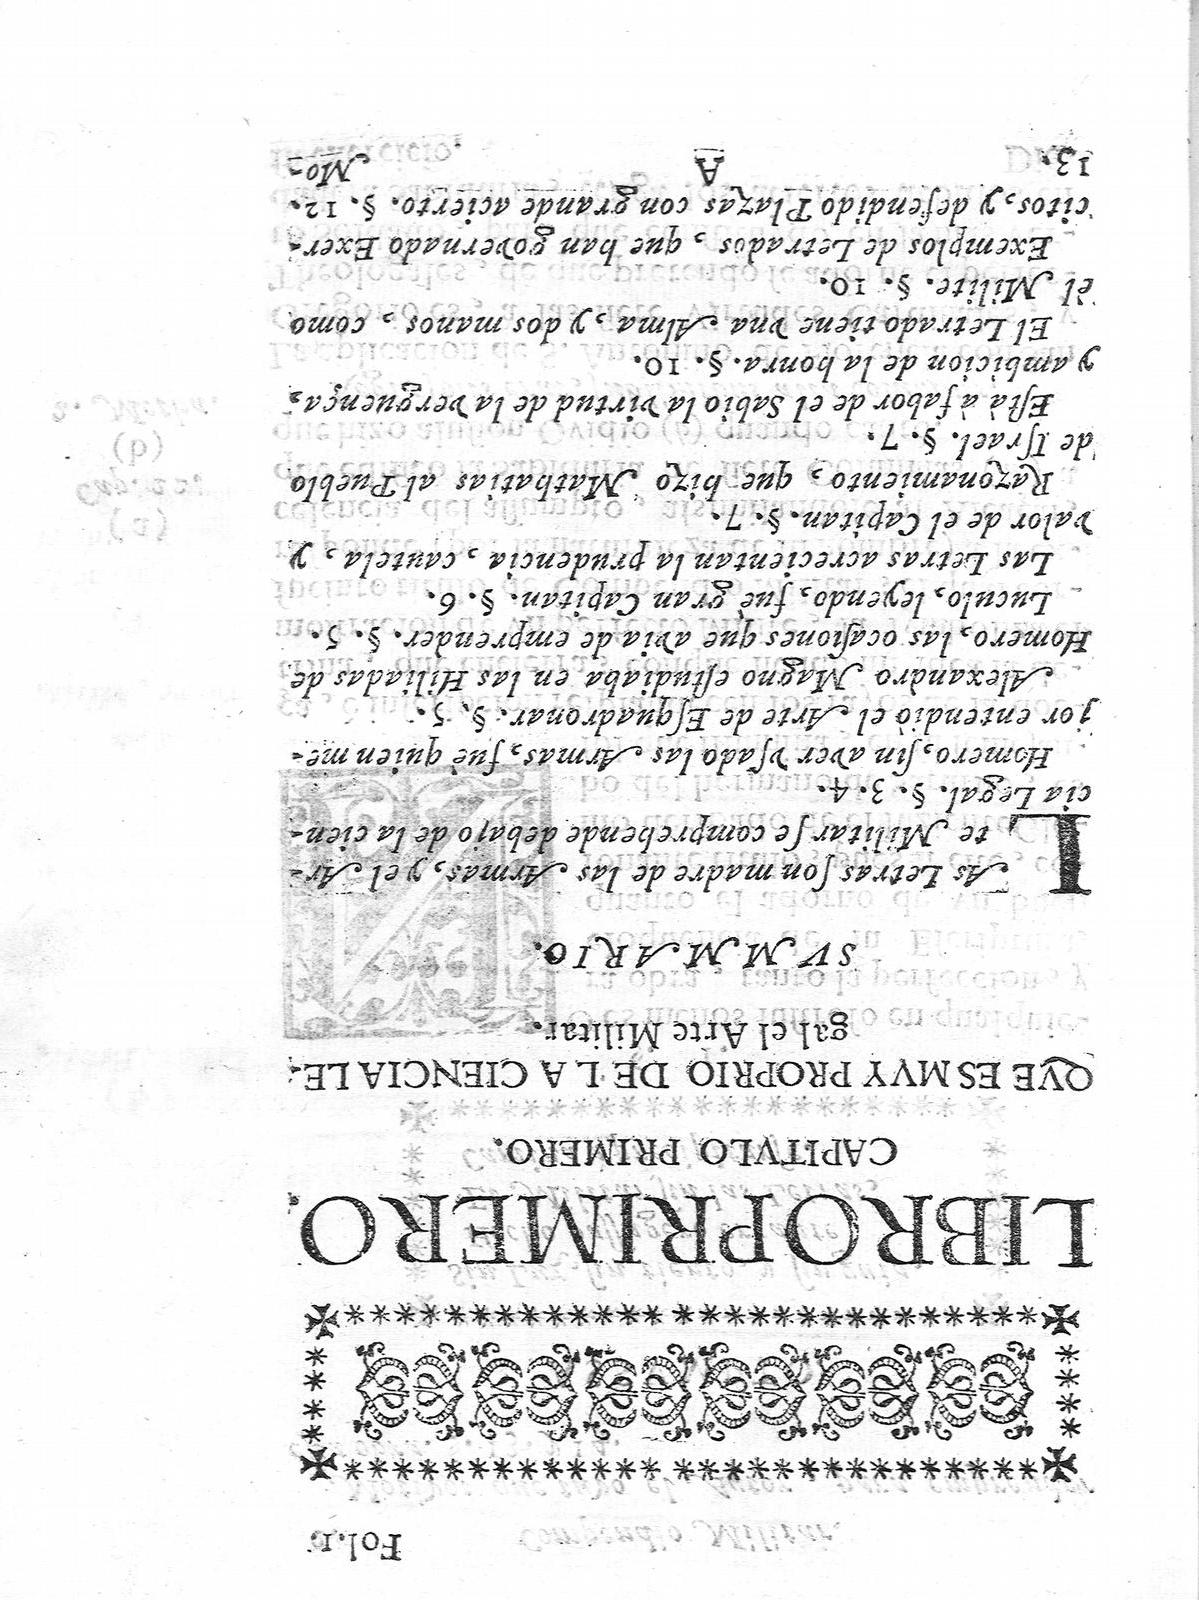 Fol.1.
LIBRO PRIMERO.
CAPITVLO PRIMERO.
QVE ES MVY PROPRIO DE LA CIENCIA LE-
gal el Arte Militar.
SVMMARIO.
LAs Letras ſon madre de las Armas, y el Ar-
te Militar ſe comprehende debajo de la cien-
cia Legal. §. 3. 4.
Homero, ſin aver vſado las Armas, fuè quien me-
jor entendiò el Arte de Eſquadronar. §. 5.
Alexandro Magno eſtudiaba en las Hiliadas de
Homero, las ocaſiones que avia de emprender. §. 5.
Luculo, leyendo, fuè gran Capitan. §. 6.
Las Letras acrecientan la prudencia, cautela, y
valor de el Capitan. §. 7.
Razonamiento, que hizo Mathatias al Pueblo
de Iſrael. §. 7.
Eſtà à fabor de el Sabio la virtud de la verguença,
y ambicion de la honra. §. 10.
El Letrado tiene vna Alma, y dos manos, como
èl Milite. §. 10.
Exemplos de Letrados, que han governado Exer-
citos, y defendido Plazas con grande acierto. §. 12.
13.
A
Mo-